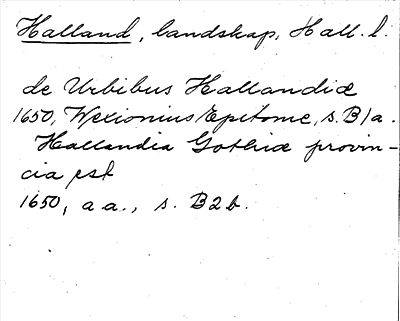 Halland, landskap, Hall. l.
de Urbibus Hallandiæ
1650, Wexionius Epitome, s. B1a.
Hallandia Gothiæ provin-
cia est
1650, a a., s. B2b.